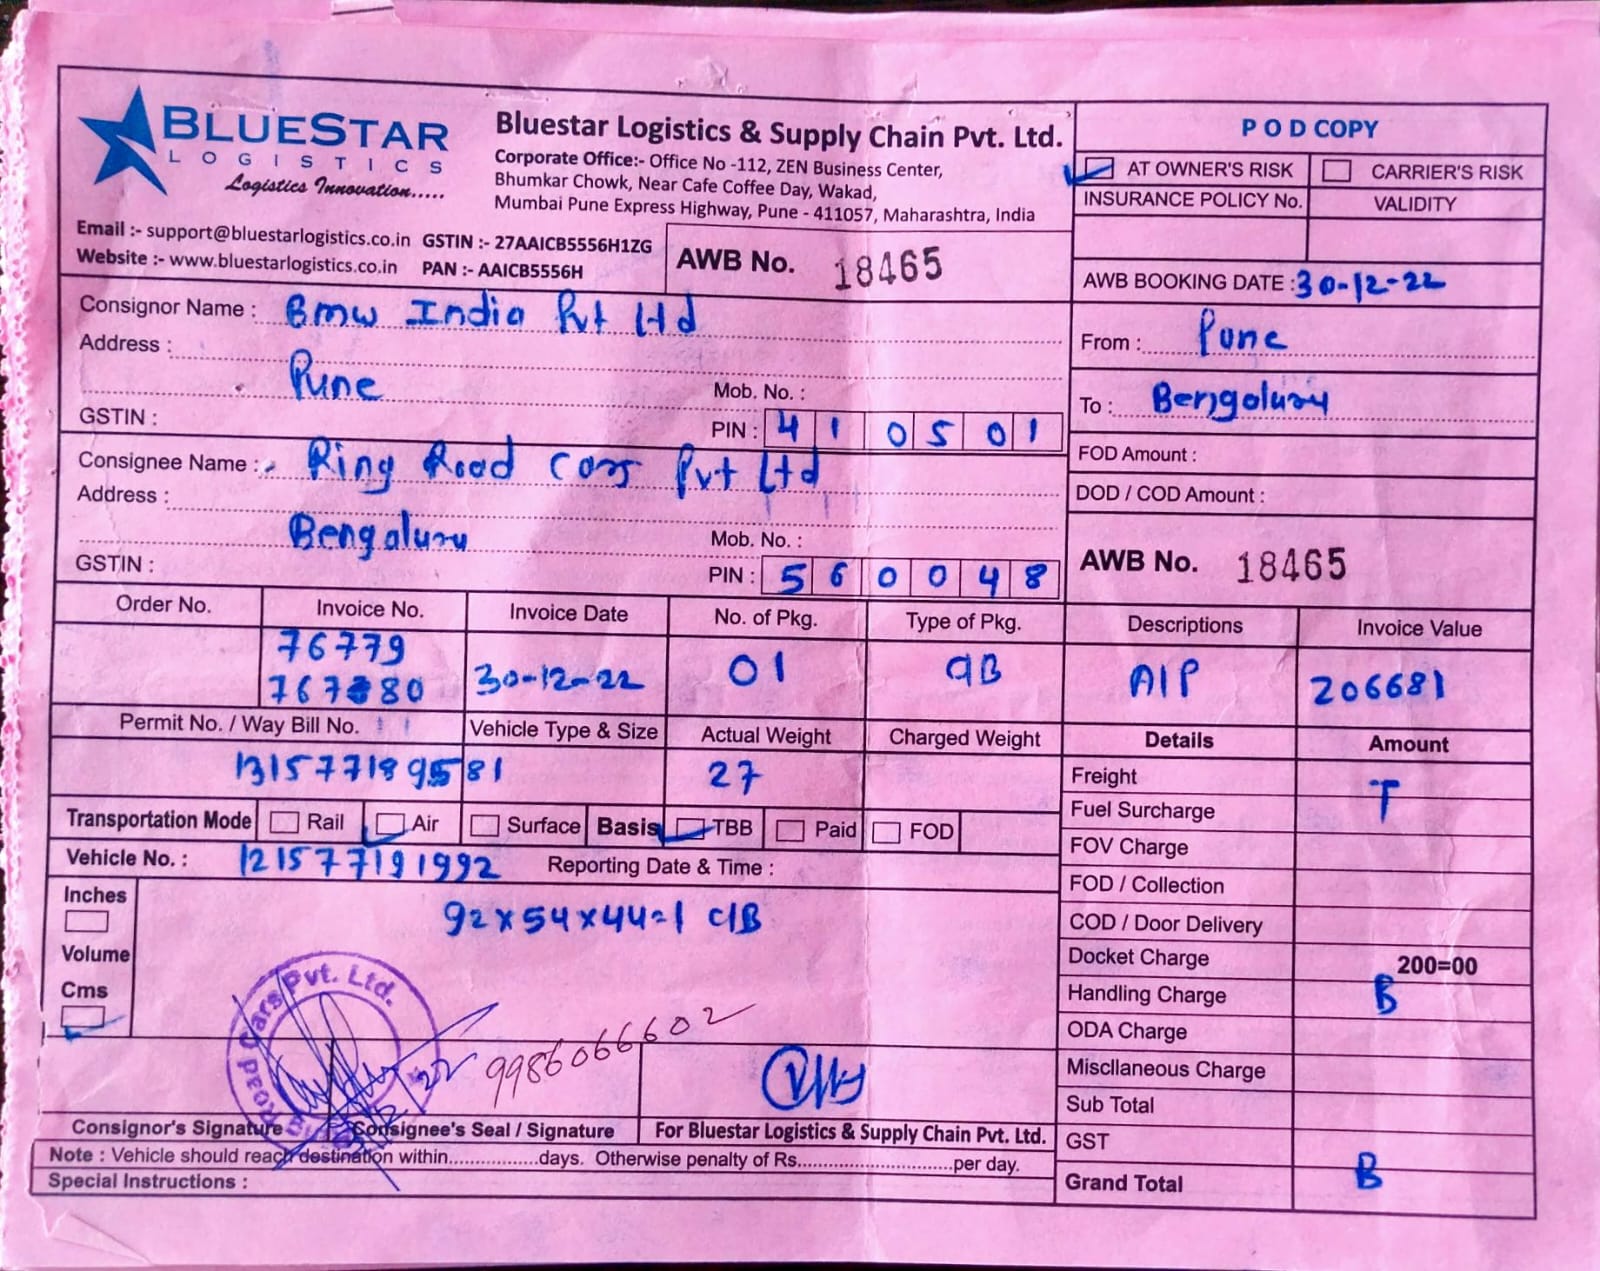 BLUESTAR
LOGISTICS
Logistics Innovation.....
Bluestar Logistics & Supply Chain Pvt. Ltd.
Corporate Office:- Office No -112, ZEN Business Center,
Bhumkar Chowk, Near Cafe Coffee Day, Wakad,
Mumbai Pune Express Highway, Pune - 411057, Maharashtra, India
Email :- support@bluestarlogistics.co.in GSTIN :- 27AAICB5556H1ZG
Website :- www.bluestarlogistics.co.in PAN :- AAICB5556H
AWB No. 18465
POD COPY
AT OWNER'S RISK CARRIER'S RISK
INSURANCE POLICY No. VALIDITY
AWB BOOKING DATE : 30-12-22
Consignor Name : Bmw India Pvt Ltd
Address :
Pune
Mob. No. :
GSTIN :
PIN : 410501
From : Pune
To : Bengaluru
FOD Amount :
DOD / COD Amount :
Consignee Name : Ring Road Cars Pvt Ltd
Address :
Bengaluru
Mob. No. :
GSTIN :
PIN : 560048
AWB No. 18465
Order No. Invoice No. Invoice Date No. of Pkg. Type of Pkg. Descriptions Invoice Value
76779
30-12-22 01 CIB AIP 206681
Permit No. / Way Bill No. Vehicle Type & Size Actual Weight Charged Weight Details Amount
27
Freight T
Fuel Surcharge
Transportation Mode Rail Air Surface Basis TBB Paid FOD
FOV Charge
Vehicle No. : 121577191992 Reporting Date & Time :
FOD / Collection
Inches
92x54x44=1 CIB
COD / Door Delivery
Volume
Docket Charge 200=00
Cms
Handling Charge B
ODA Charge
Ring Road Cars Pvt. Ltd.
9986066602
Miscllaneous Charge
Sub Total
Consignor's Signature Consignee's Seal / Signature For Bluestar Logistics & Supply Chain Pvt. Ltd.
GST
Note : Vehicle should reach destination within.................days. Otherwise penalty of Rs.............................per day.
Grand Total B
Special Instructions :